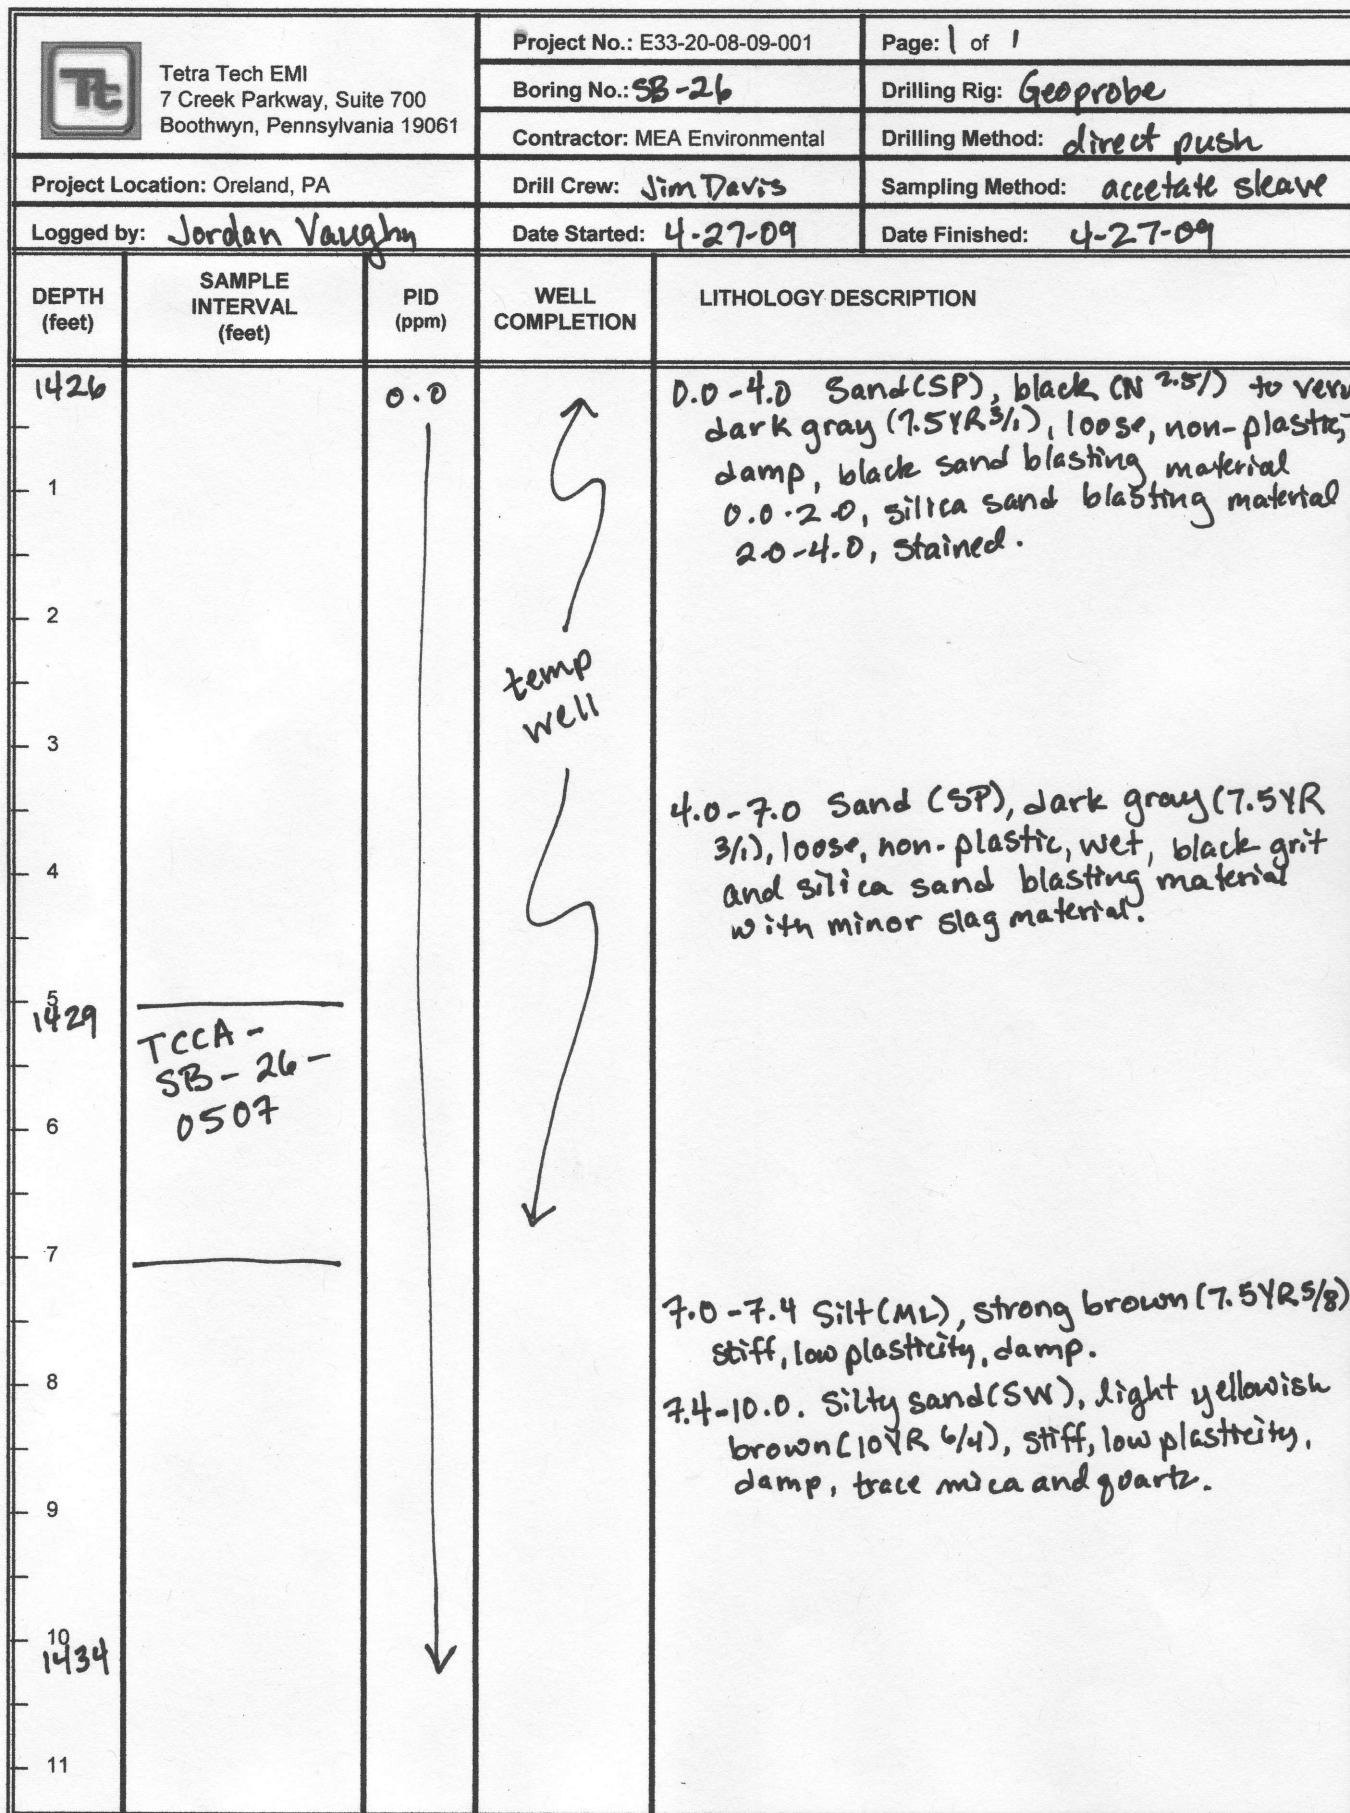 Tt
Tetra Tech EMI
7 Creek Parkway, Suite 700
Boothwyn, Pennsylvania 19061
Project No.: E33-20-08-09-001
Page: 1 of 1
Boring No.: SB-26
Drilling Rig: Geoprobe
Contractor: MEA Environmental
Drilling Method: direct push
Project Location: Oreland, PA
Drill Crew: Jim Davis
Sampling Method: accetate sleave
Logged by: Jordan Vaughn
Date Started: 4-27-09
Date Finished: 4-27-09
DEPTH
(feet)
SAMPLE
INTERVAL
(feet)
PID
(ppm)
WELL
COMPLETION
LITHOLOGY DESCRIPTION
1426
0.0
0.0-4.0 Sand (SP), black (N 2.5/) to very
dark gray (7.5YR 3/1), loose, non-plastic,
damp, black sand blasting material
0.0-2.0, silica sand blasting material
2.0-4.0, stained.
1
2
temp
well
3
4.0-7.0 Sand (SP), dark gray (7.5YR
3/1), loose, non-plastic, wet, black grit
and silica sand blasting material
with minor slag material.
4
5
1429
TCCA-
SB-26-
0507
6
7
7.0-7.4 Silt (ML), strong brown (7.5YR 5/8)
stiff, low plasticity, damp.
8
7.4-10.0. Silty sand (SW), light yellowish
brown (10YR 6/4), stiff, low plasticity,
damp, trace mica and quartz.
9
10
1434
11